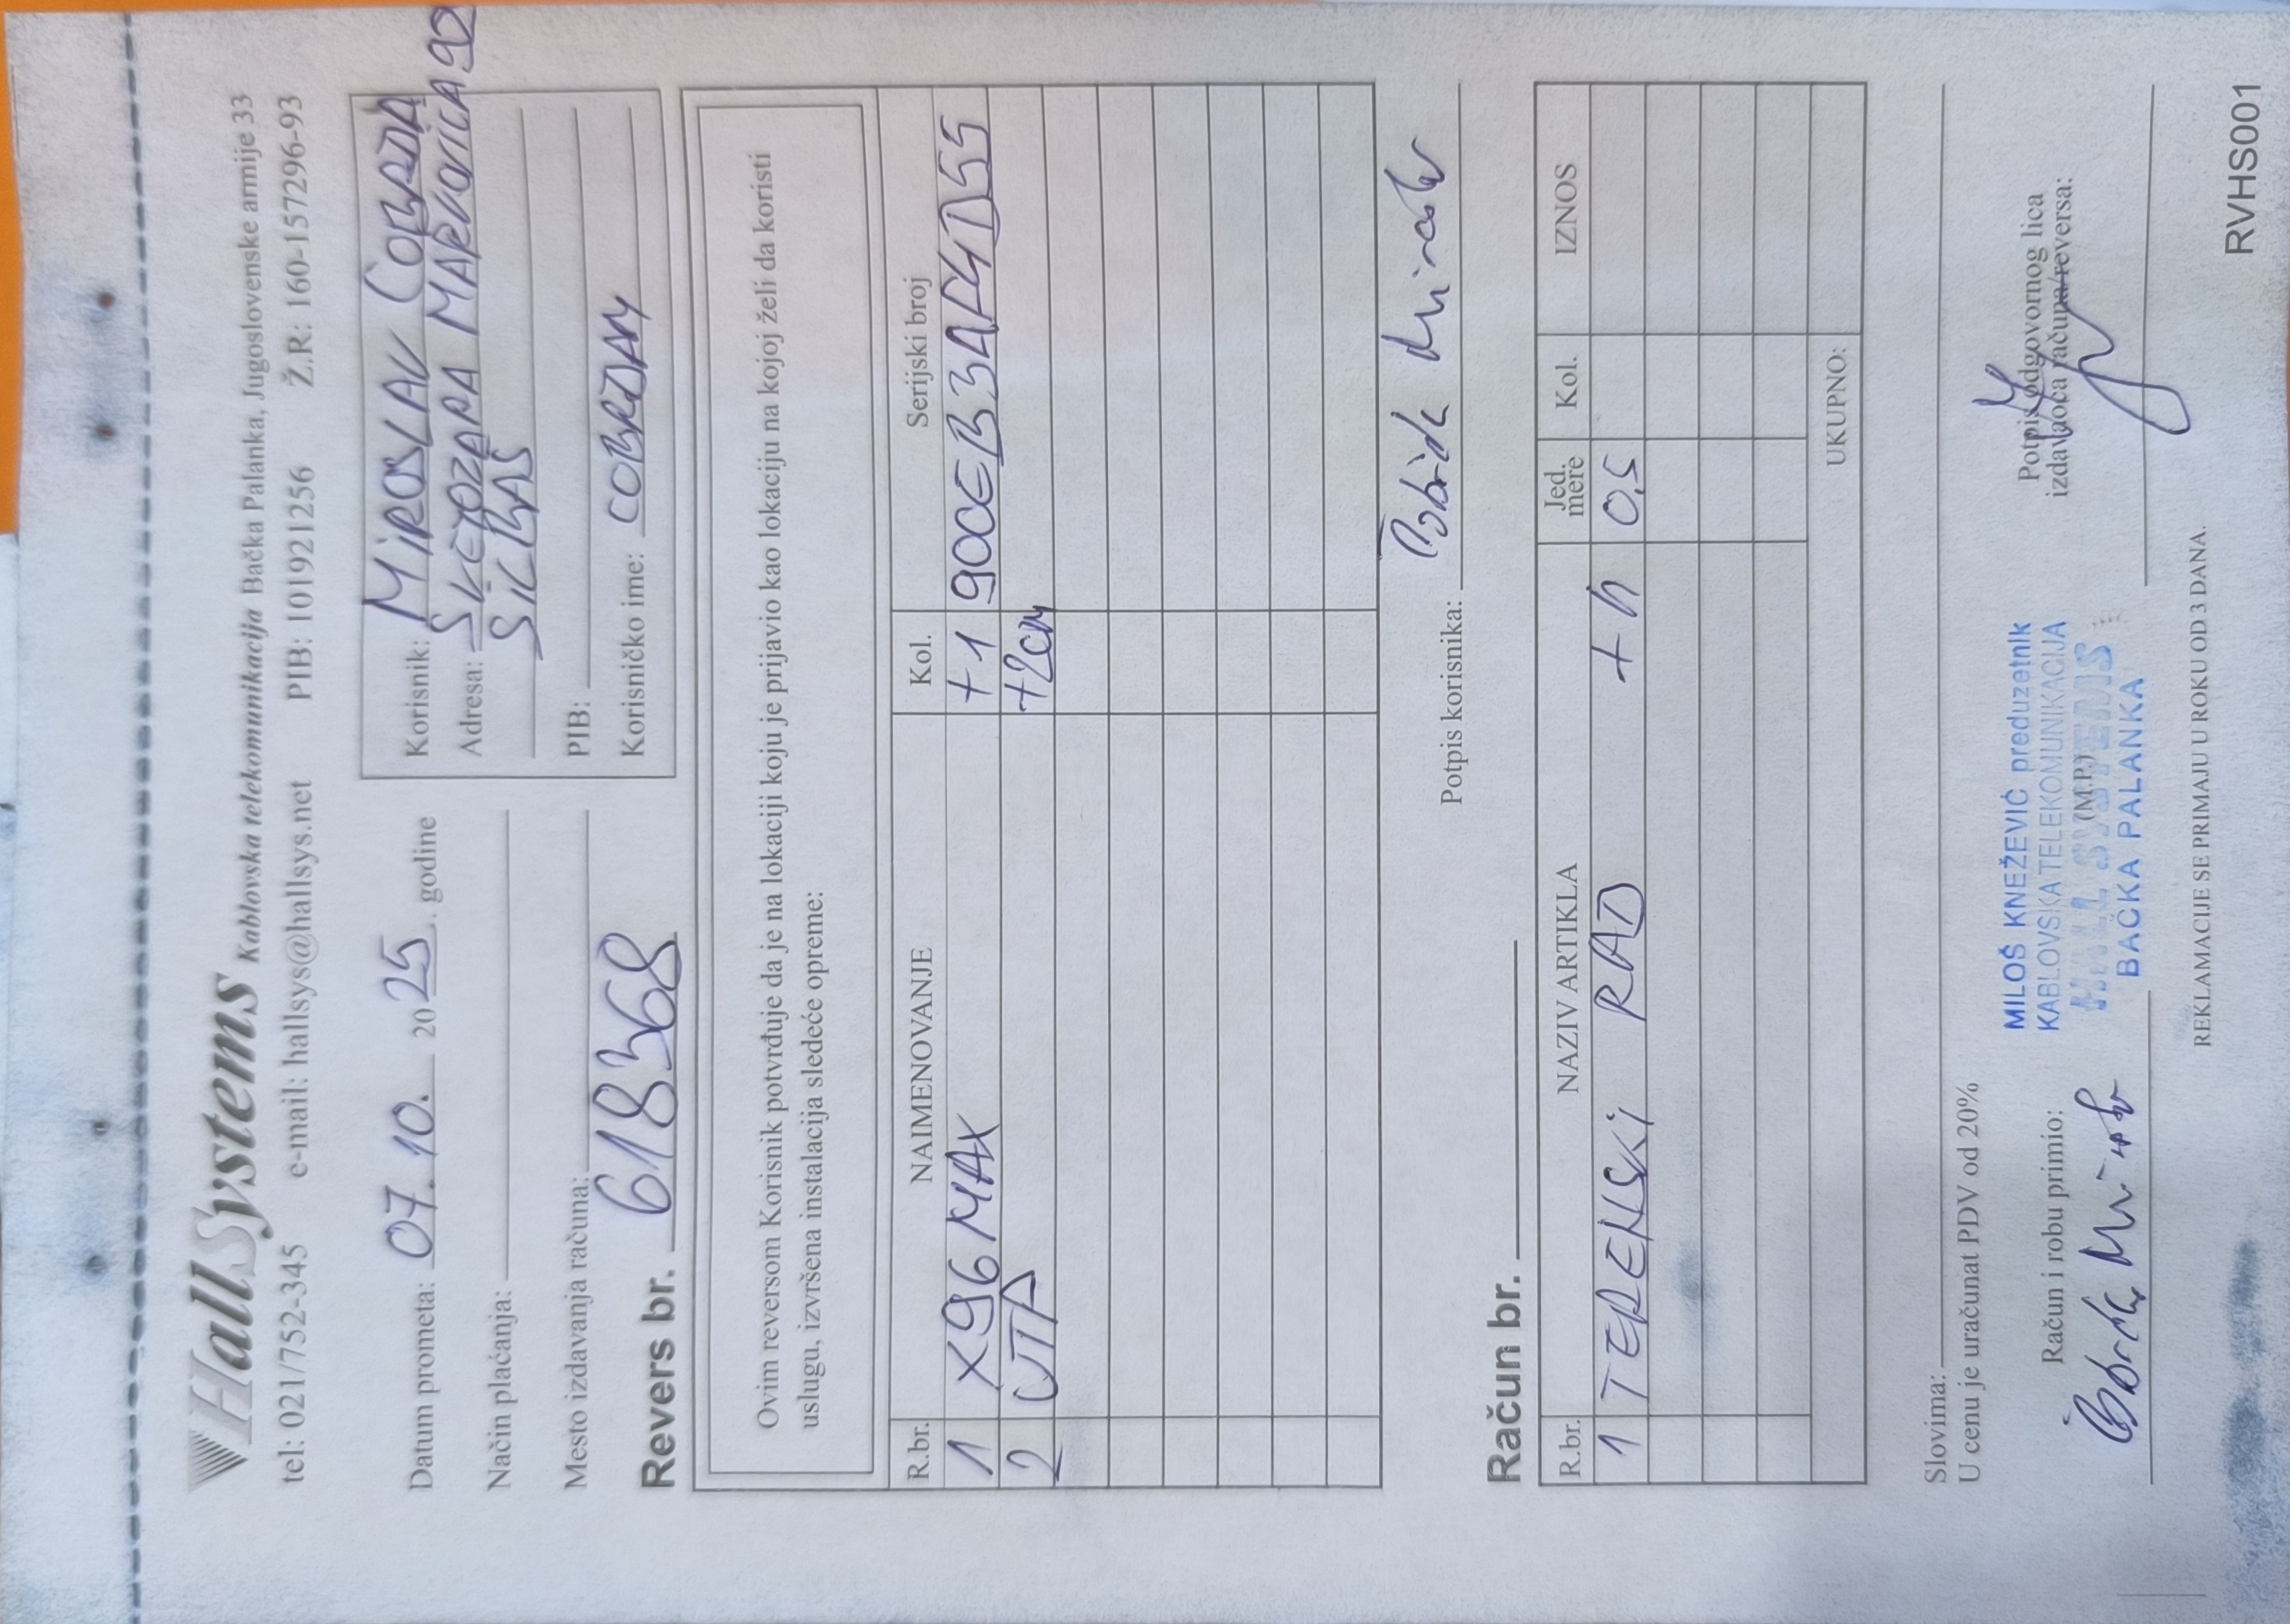 HallSystems Kablovska telekomunikacija Bačka Palanka, Jugoslovenske armije 33
tel: 021/752-345 e-mail: hallsys@hallsys.net PIB: 101921256 Ž.R: 160-157296-93
Datum prometa: 07.10. 2025. godine
Način plaćanja:
Mesto izdavanja računa:
Revers br. 618368
Korisnik: MIROSLAV ČOBRDA
Adresa: SVETOZARA MARKOVIĆA 92
SILBAŠ
PIB:
Korisničko ime: COBRDAM
Ovim reversom Korisnik potvrđuje da je na lokaciji koju je prijavio kao lokaciju na kojoj želi da koristi
uslugu, izvršena instalacija sledeće opreme:
R.br. NAIMENOVANJE Kol. Serijski broj
1 X96 MAX +1 90CEB3AF4D55
2 UTP +2cm
Potpis korisnika:
Račun br.
R.br. NAZIV ARTIKLA Jed. mere Kol. IZNOS
1 TERENSKI RAD +h 0,5
UKUPNO:
Slovima:
U cenu je uračunat PDV od 20%
Račun i robu primio:
MILOŠ KNEŽEVIĆ preduzetnik
KABLOVSKA TELEKOMUNIKACIJA
HALL SYSTEMS
(M.P.)
BAČKA PALANKA
Potpis odgovornog lica
izdavaoca računa/reversa:
REKLAMACIJE SE PRIMAJU U ROKU OD 3 DANA.
RVHS001